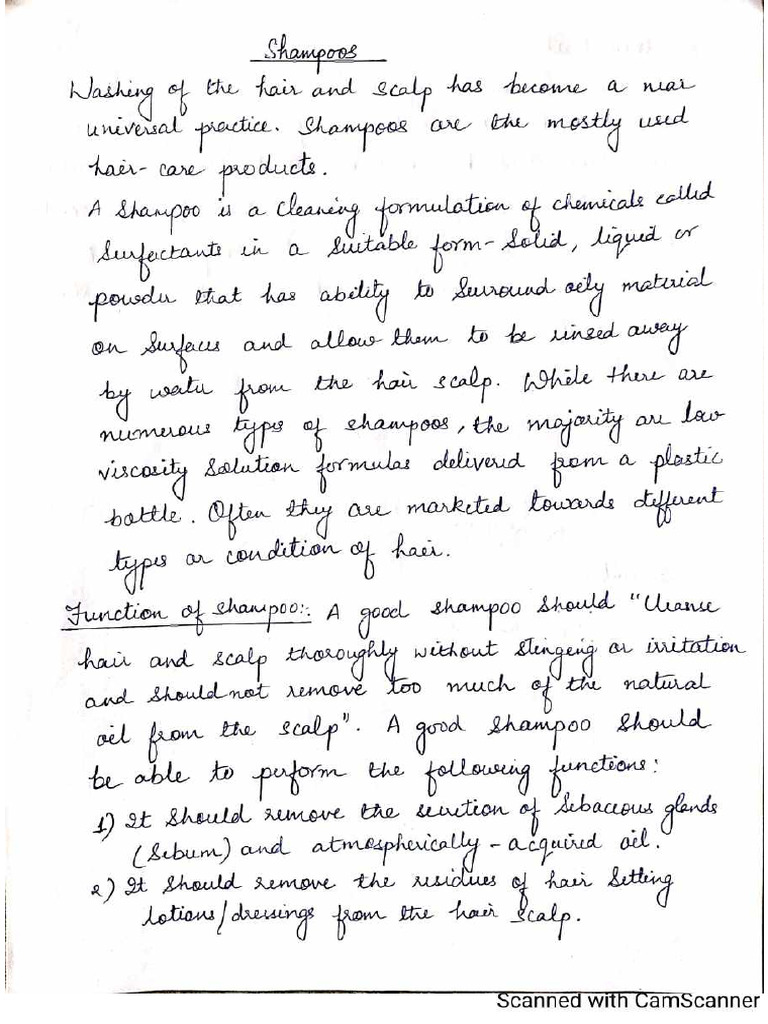 Shampoos
Washing of the hair and scalp has become a near
universal practice. Shampoos are the mostly used
hair-care products.
A Shampoo is a cleaning formulation of chemicals called
Surfactants in a suitable form-Solid, liquid or
powder that has ability to Surround oily material
on Surfaces and allow them to be rinsed away
by water from the hair scalp. While there are
numerous types of shampoos, the majority are low
viscosity solution formulas delivered from a plastic
bottle. Often they are marketed towards different
types or condition of hair.
Function of shampoo:. A good shampoo should "Cleanse
hair and scalp thoroughly without stingeing or irritation
and should not remove too much of the natural
oil from the scalp". A good shampoo should
be able to perform the following functions:
1) It should remove the secretion of Sebaceous glands
(Sebum) and atmospherically - acquired oil.
2) It should remove the residues of hair Setting
lotions/dressings from the hair scalp.
Scanned with CamScanner